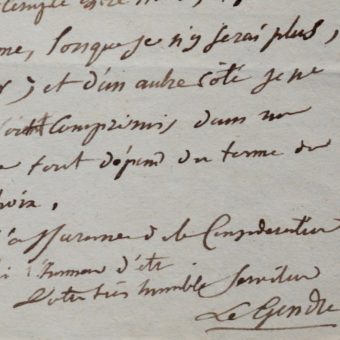 me, lorsque je n'y serai plus,
; et d'un autre côté je ne
compromis dans
tout dépend du terme de
assurance de la Consideration
l'honneur d'etre
Votre très humble Serviteur
Le Gendre